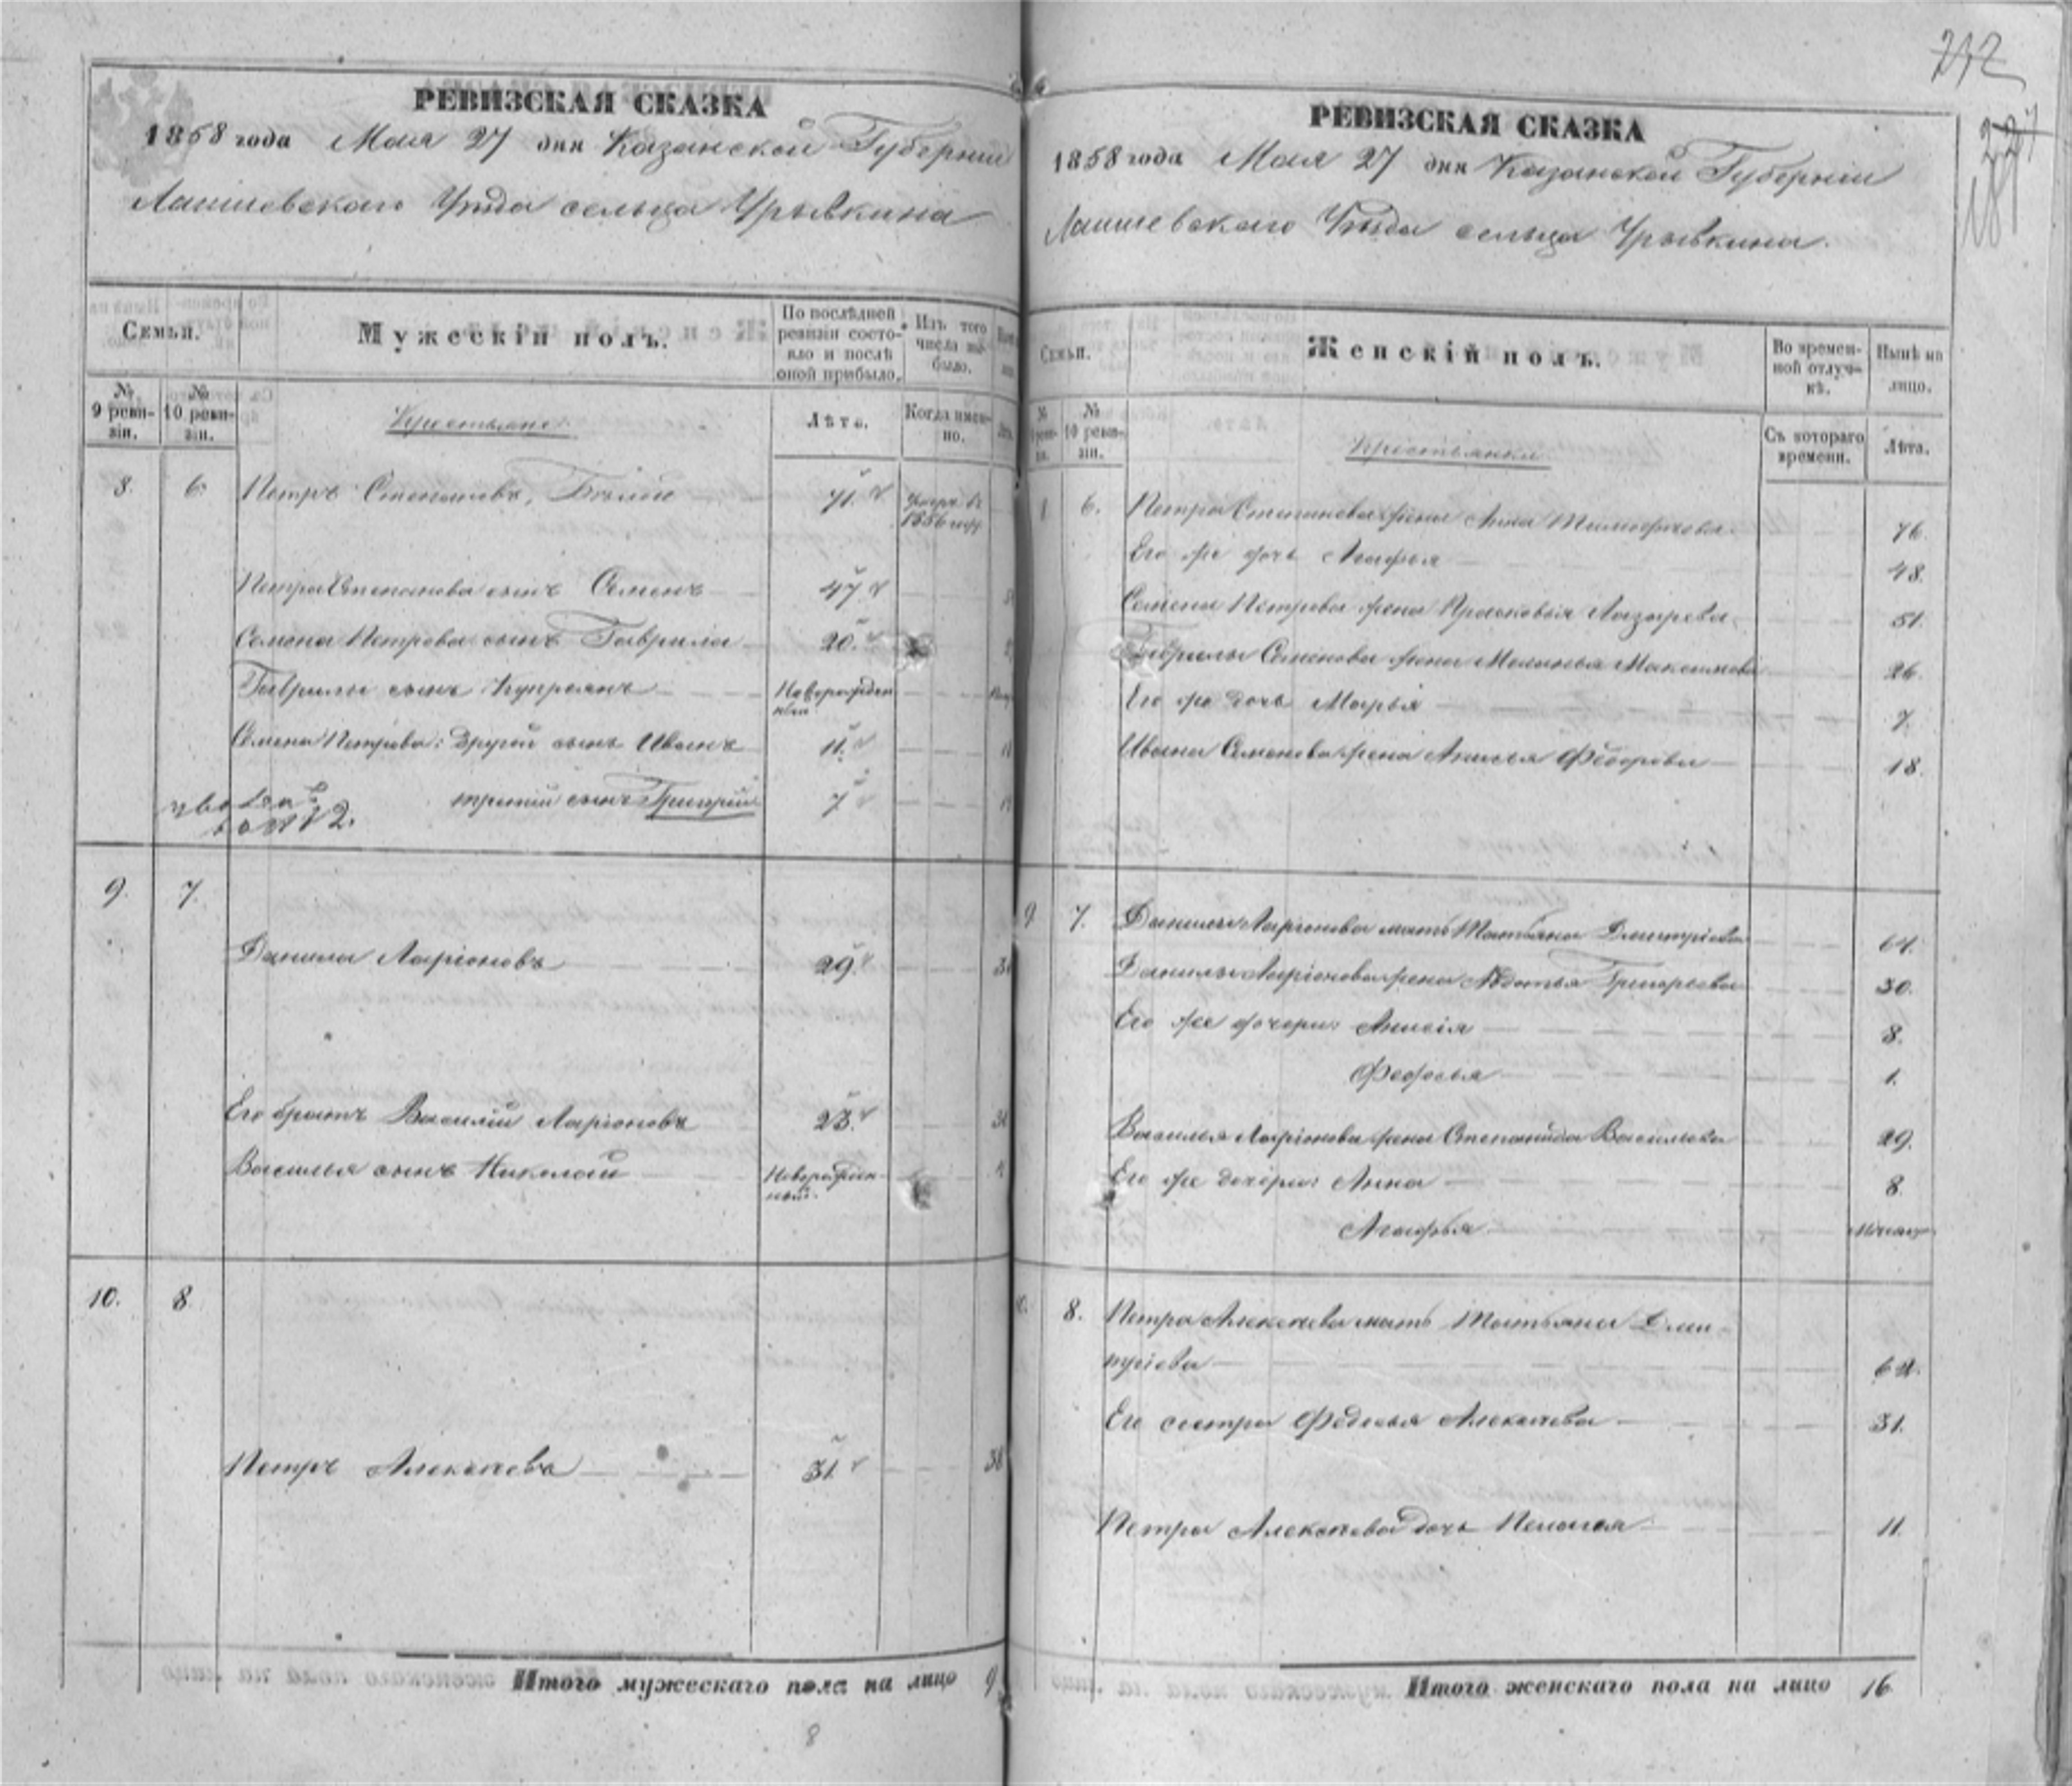 РЕВИЗСКАЯ СКАЗКА
1858 года Мая 27 дня Казанской Губернии
Лаишевскаго Уѣзда сельца Урывкина
Семьи.
Мужескій полъ.
По послѣдней ревизіи состояло и послѣ оной прибыло.
Изъ того числа выбыло.
№ 9 ревизіи.
№ 10 ревизіи.
Крестьяне
Лѣта.
Когда именно.
8. 6. Петръ Степановъ, 71. умеръ въ 1856 году
Петра Степанова сынъ Семенъ 47
Семена Петрова сынъ Гаврила 20.
Гаврилы сынъ Купреянъ Новорожденный
Семена Петрова: другой сынъ Иванъ 11.
третій сынъ Григорій 7
9. 7.
Данила Ларіоновъ 29.
Его братъ Василій Ларіоновъ 23.
Василья сынъ Николай Новорожденный.
10. 8.
Петръ Алексѣевъ 31.
Итого мужескаго пола на лицо 9
8
212
РЕВИЗСКАЯ СКАЗКА
1858 года Мая 27 дня Казанской Губерніи
Лаишевскаго Уѣзда сельца Урывкина.
Семьи.
Женскій полъ.
Во временной отлучкѣ.
Нынѣ на лицо.
№ 10 ревизіи.
Крестьянки
Съ котораго времени.
Лѣта.
6. Петра Степанова жена Анна Тимофеева 76.
Его же дочь Агафья 48.
Семена Петрова жена Прасковья Лазарева 51.
Гаврилы Семенова жена Маланья Максимова 26.
Его же дочь Марья 7.
Ивана Семенова жена Анисья Федорова 18.
9 7. Данилы Ларіонова мать Татьяна Дмитріева 64.
Данилы Ларіонова жена Авдотья Григорьева 30.
Его же дочери: Анисія 8.
Федосья 1.
Василья Ларіонова жена Степанида Васильева 29.
Его же дочери: Анна 8
Агафья
8. Петра Алексѣева мать Татьяна Дми-
тріева
Его сестра Федосья Алексѣева 31.
Петра Алексѣева дочь Пелагея 11.
Итого женскаго пола на лицо 16